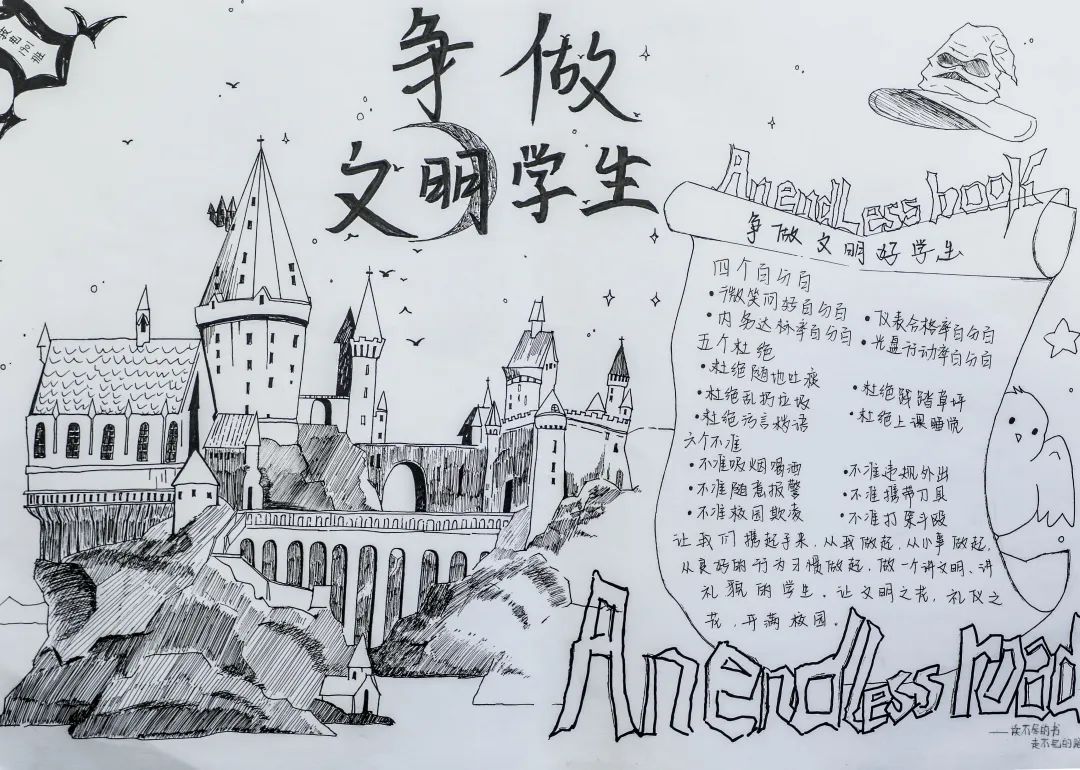 争做
文明学生
An endless book
争做文明好学生
四个百分百
•微笑问好百分百
•仪表合格率百分百
•内务达标率百分百
•光盘行动率百分百
五个杜绝
•杜绝随地吐痰
•杜绝践踏草坪
•杜绝乱扔垃圾
•杜绝上课睡觉
•杜绝污言秽语
六个不准
•不准吸烟喝酒
•不准违规外出
•不准随意报警
•不准携带刀具
•不准校园欺凌
•不准打架斗殴
让我们携起手来,从我做起,从小事做起,
从良好的行为习惯做起,做一个讲文明、讲
礼貌的学生。让文明之花,礼仪之
花,开满校园。
An endless road
——读不尽的书
走不完的路